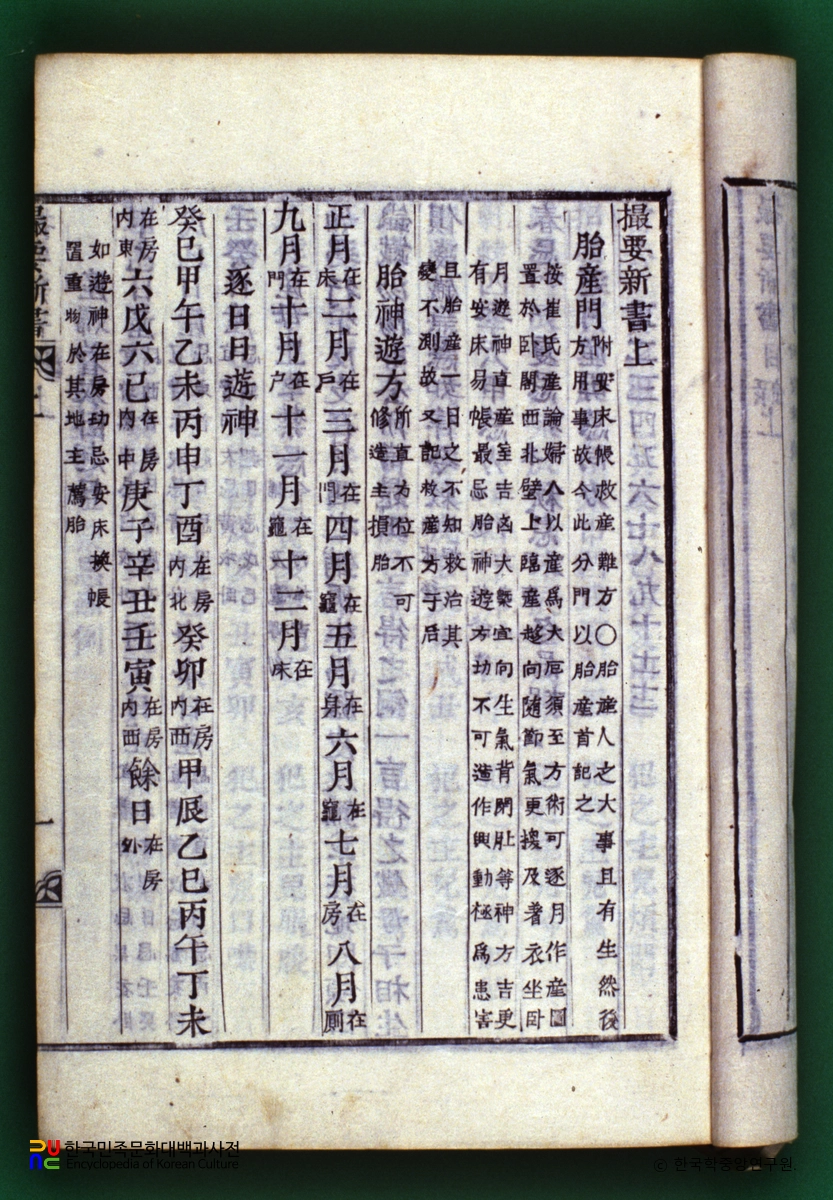 撮要新書上
胎産門 附安床帳救産難方〇胎産人之大事且有生然後
方用事故今此分門以胎産首記之
按崔氏産論婦人以産爲大厄須至方術可逐月作産圖
置於卧閣西北壁上臨産趂向隨節氣更換及著衣坐卧
月遊神直産至吉凶大槩宜向生氣背閉肚等神方吉更
有安床易帳最忌胎神遊方切不可造作興動極爲患害
且胎産一日之不知救治其
變不測故又記救産方于后
胎神遊方 所直方位不可
修造主損胎
正月在床二月在戶三月在門四月在竈五月在身六月在竈七月在房八月在厠
九月在門十月在户十一月在竈十二月在床
逐日日遊神
癸巳甲午乙未丙申丁酉在房内北癸卯在房内西甲辰乙巳丙午丁未
在房内東六戊六己在房内中庚子辛丑壬寅在房内西餘日在房外
如遊神在房切忌安床換帳
置重物於其地主墮胎
撮要新書 上
一
한국민족문화대백과사전
Encyclopedia of Korean Culture
© 한국학중앙연구원